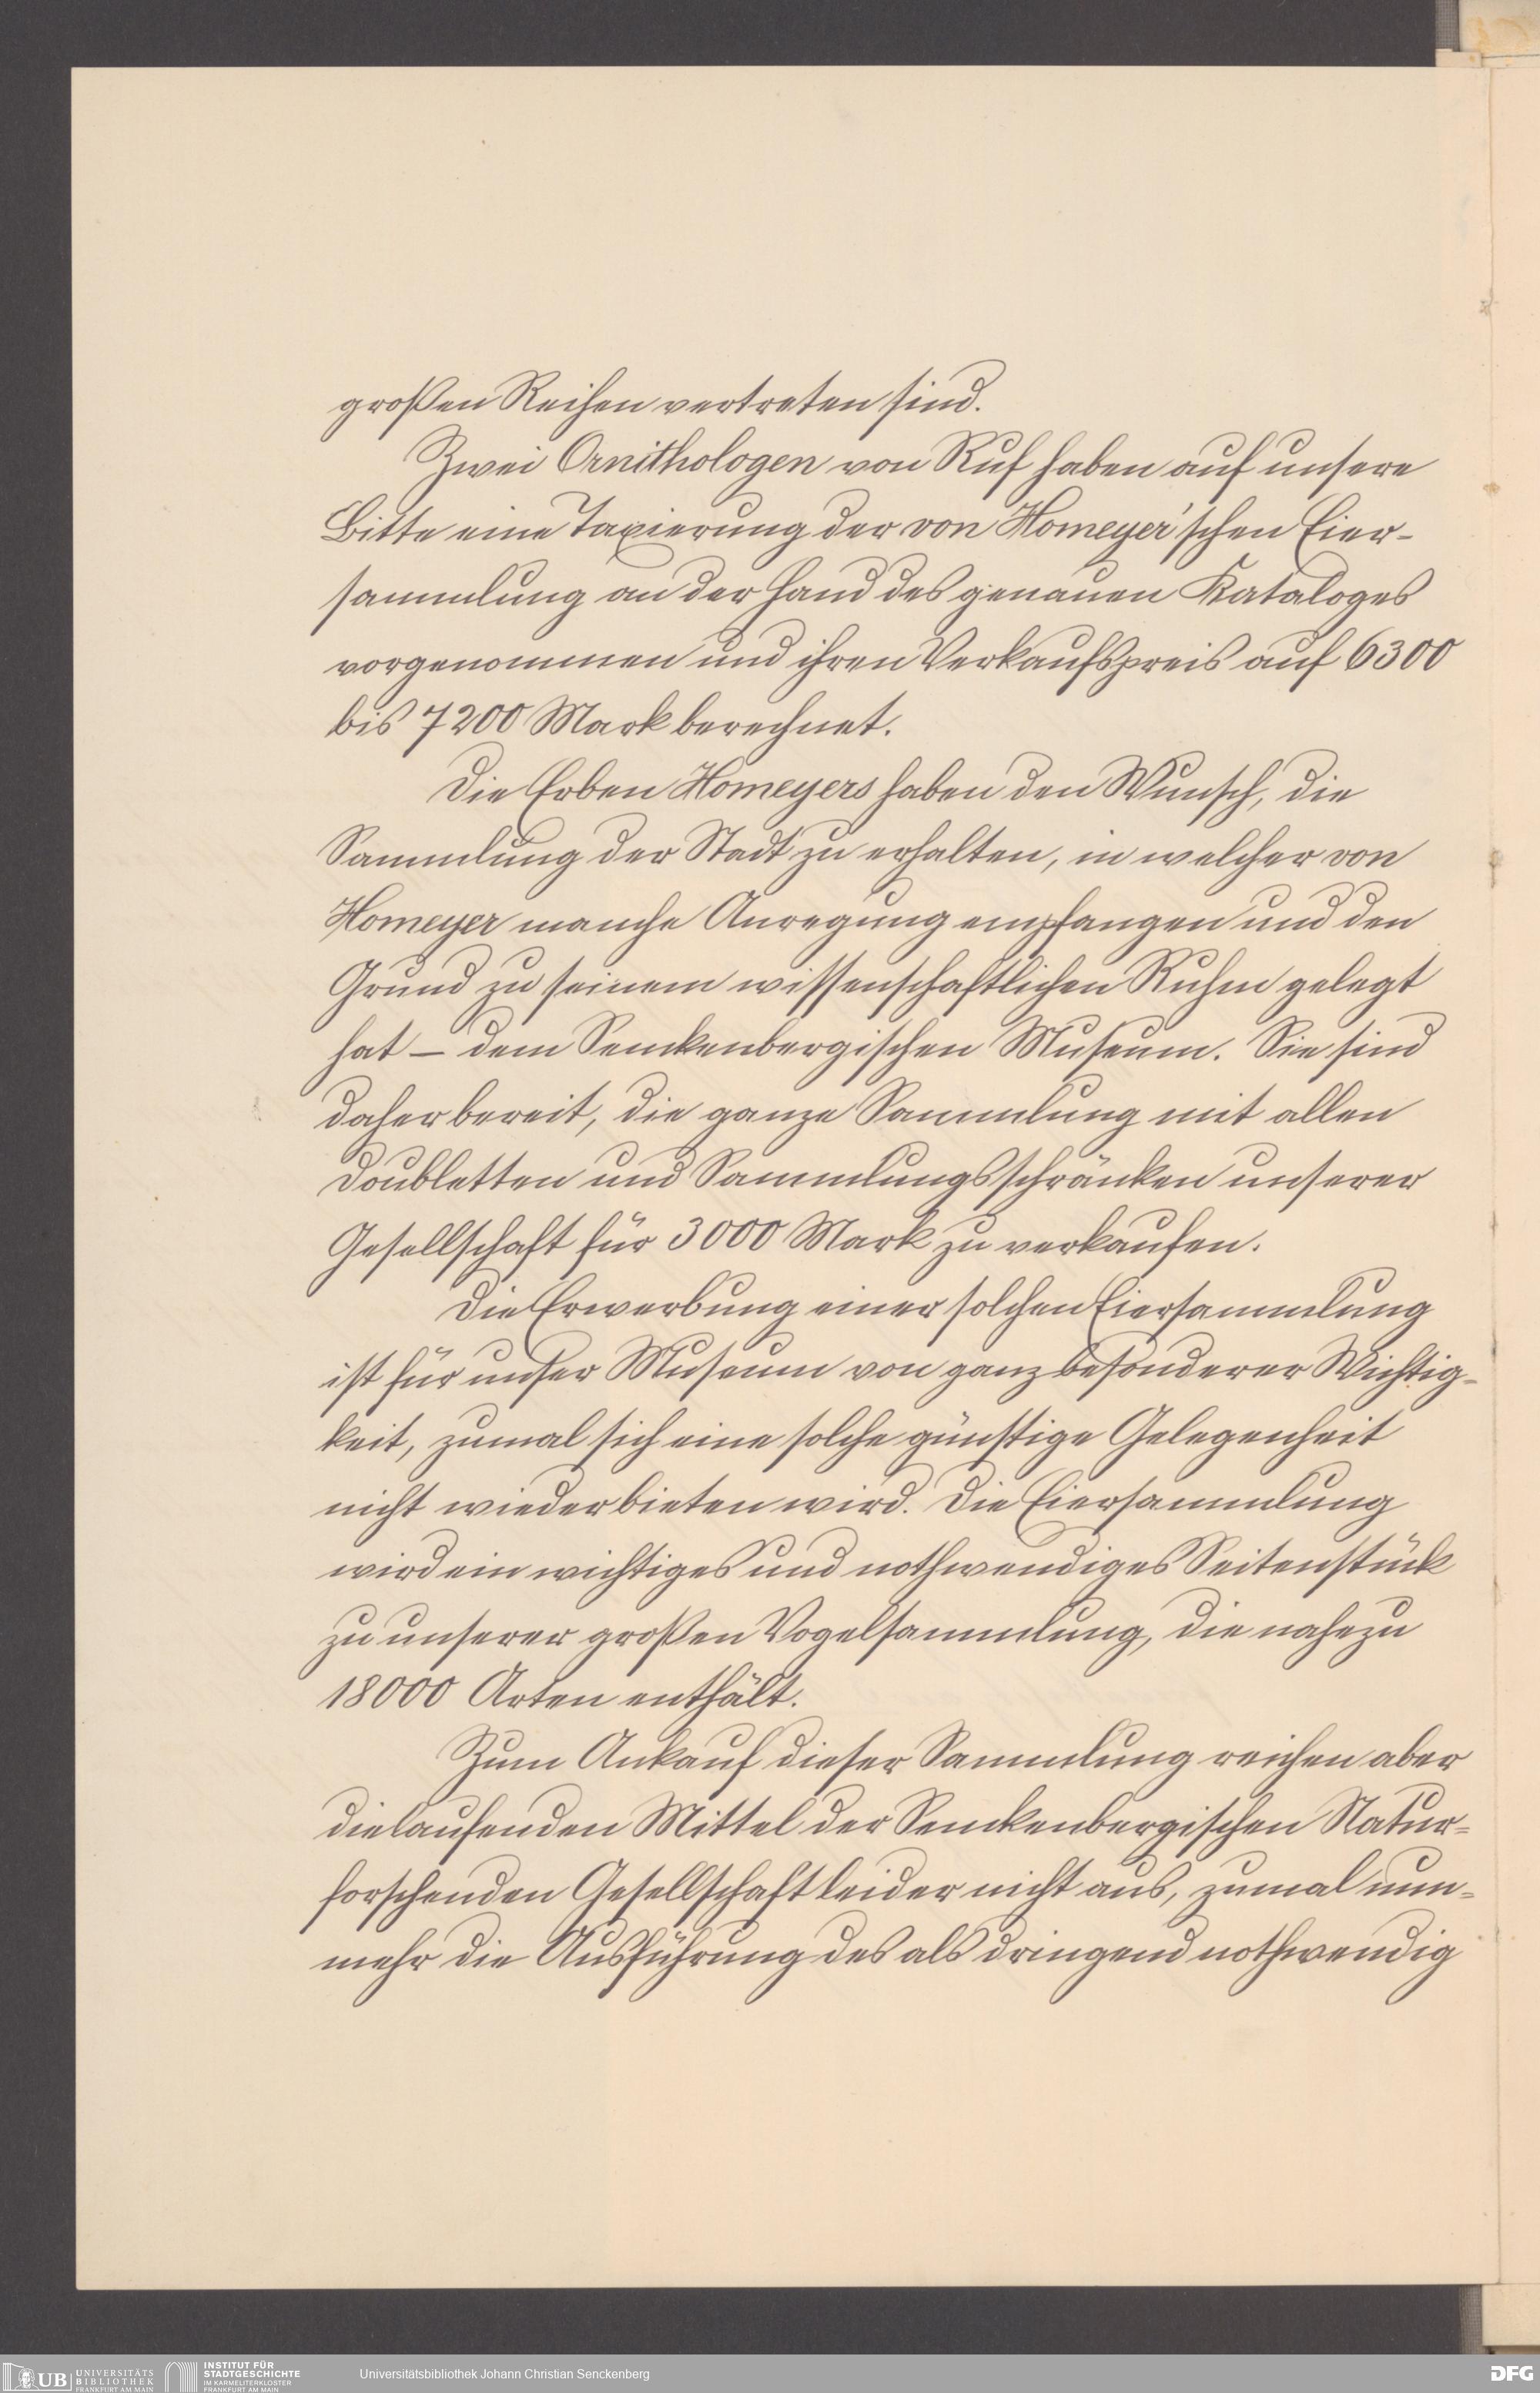 großen Reihen vertreten sind.
Zwei Ornithologen von Ruf haben auf unsere
Bitte eine Taxierung der von Homeyer'schen Eier-
sammlung an der Hand des genauen Kataloges
vorgenommen und ihren Verkaufspreis auf 6300
bis 7200 Mark berechnet.
Die Erben Homeyers haben den Wunsch, die
Sammlung der Stadt zu erhalten, in welcher von
Homeyer manche Anregung empfangen und den
Grund zu seinem wissenschaftlichen Ruhm gelegt
hat – dem Senckenbergischen Museum. Sie sind
daher bereit, die ganze Sammlung mit allen
Doubletten und Sammlungsschränken unserer
Gesellschaft für 3000 Mark zu verkaufen.
Die Erwerbung einer solchen Eiersammlung
ist für unser Museum von ganz besonderer Wichtig-
keit, zumal sich eine solche günstige Gelegenheit
nicht wieder bieten wird. Die Eiersammlung
wird ein wichtiges und nothwendiges Seitenstück
zu unserer großen Vogelsammlung, die nahezu
18000 Arten enthält.
Zum Ankauf dieser Sammlung reichen aber
die laufenden Mittel der Senckenbergischen Natur-
forschenden Gesellschaft leider nicht aus, zumal nun-
mehr die Ausführung des als dringend nothwendig
UB UNIVERSITÄTS
BIBLIOTHEK
FRANKFURT AM MAIN
INSTITUT FÜR
STADTGESCHICHTE
IM KARMELITERKLOSTER
FRANKFURT AM MAIN
Universitätsbibliothek Johann Christian Senckenberg
DFG